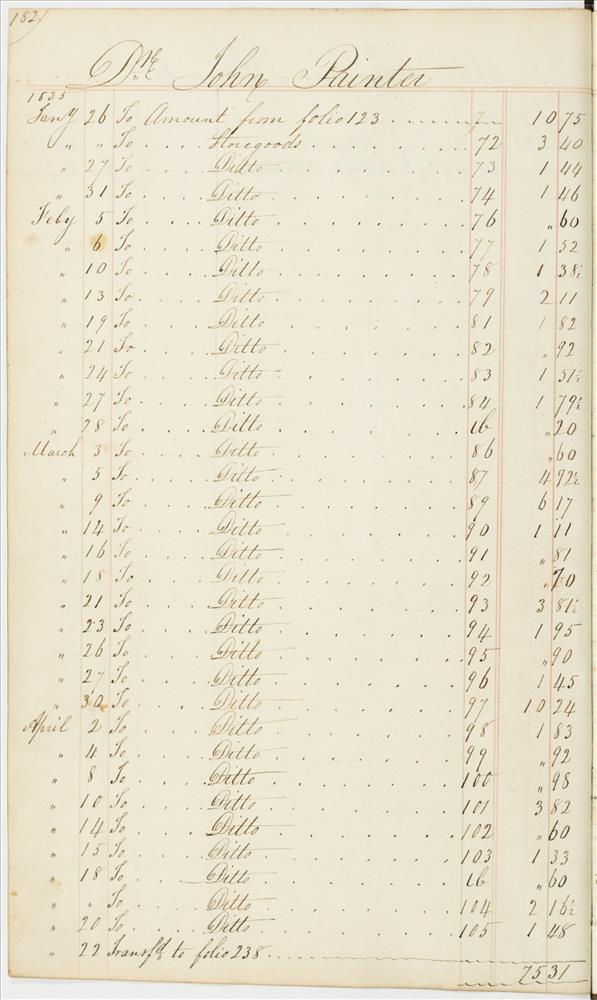 182
Dr. John Painter
1835
Jany 26 To Amount from folio 123 10 75
" " To Storegoods 72 3 40
" 27 To Ditto 73 1 44
" 31 To Ditto 74 1 46
Feby 5 To Ditto 76 " 60
" 6 To Ditto 77 1 52
" 10 To Ditto 78 1 38½
" 13 To Ditto 79 2 11
" 19 To Ditto 81 1 82
" 21 To Ditto 82 " 92
" 24 To Ditto 83 1 51½
" 27 To Ditto 84 1 79½
" 28 To Ditto ib " 20
March 3 To Ditto 86 " 60
" 5 To Ditto 87 4 92½
" 9 To Ditto 89 6 17
" 14 To Ditto 90 1 11
" 16 To Ditto 91 " 81
" 18 To Ditto 92 " 70
" 21 To Ditto 93 3 81½
" 23 To Ditto 94 1 95
" 26 To Ditto 95 " 90
" 27 To Ditto 96 1 45
" 30 To Ditto 97 10 24
April 2 To Ditto 98 1 83
" 4 To Ditto 99 " 92
" 8 To Ditto 100 " 98
" 10 To Ditto 101 3 82
" 14 To Ditto 102 " 60
" 15 To Ditto 103 1 33
" 18 To Ditto ib " 60
" " To Ditto 104 2 16½
" 20 To Ditto 105 1 48
" 22 Transfd to folio 238
75 31